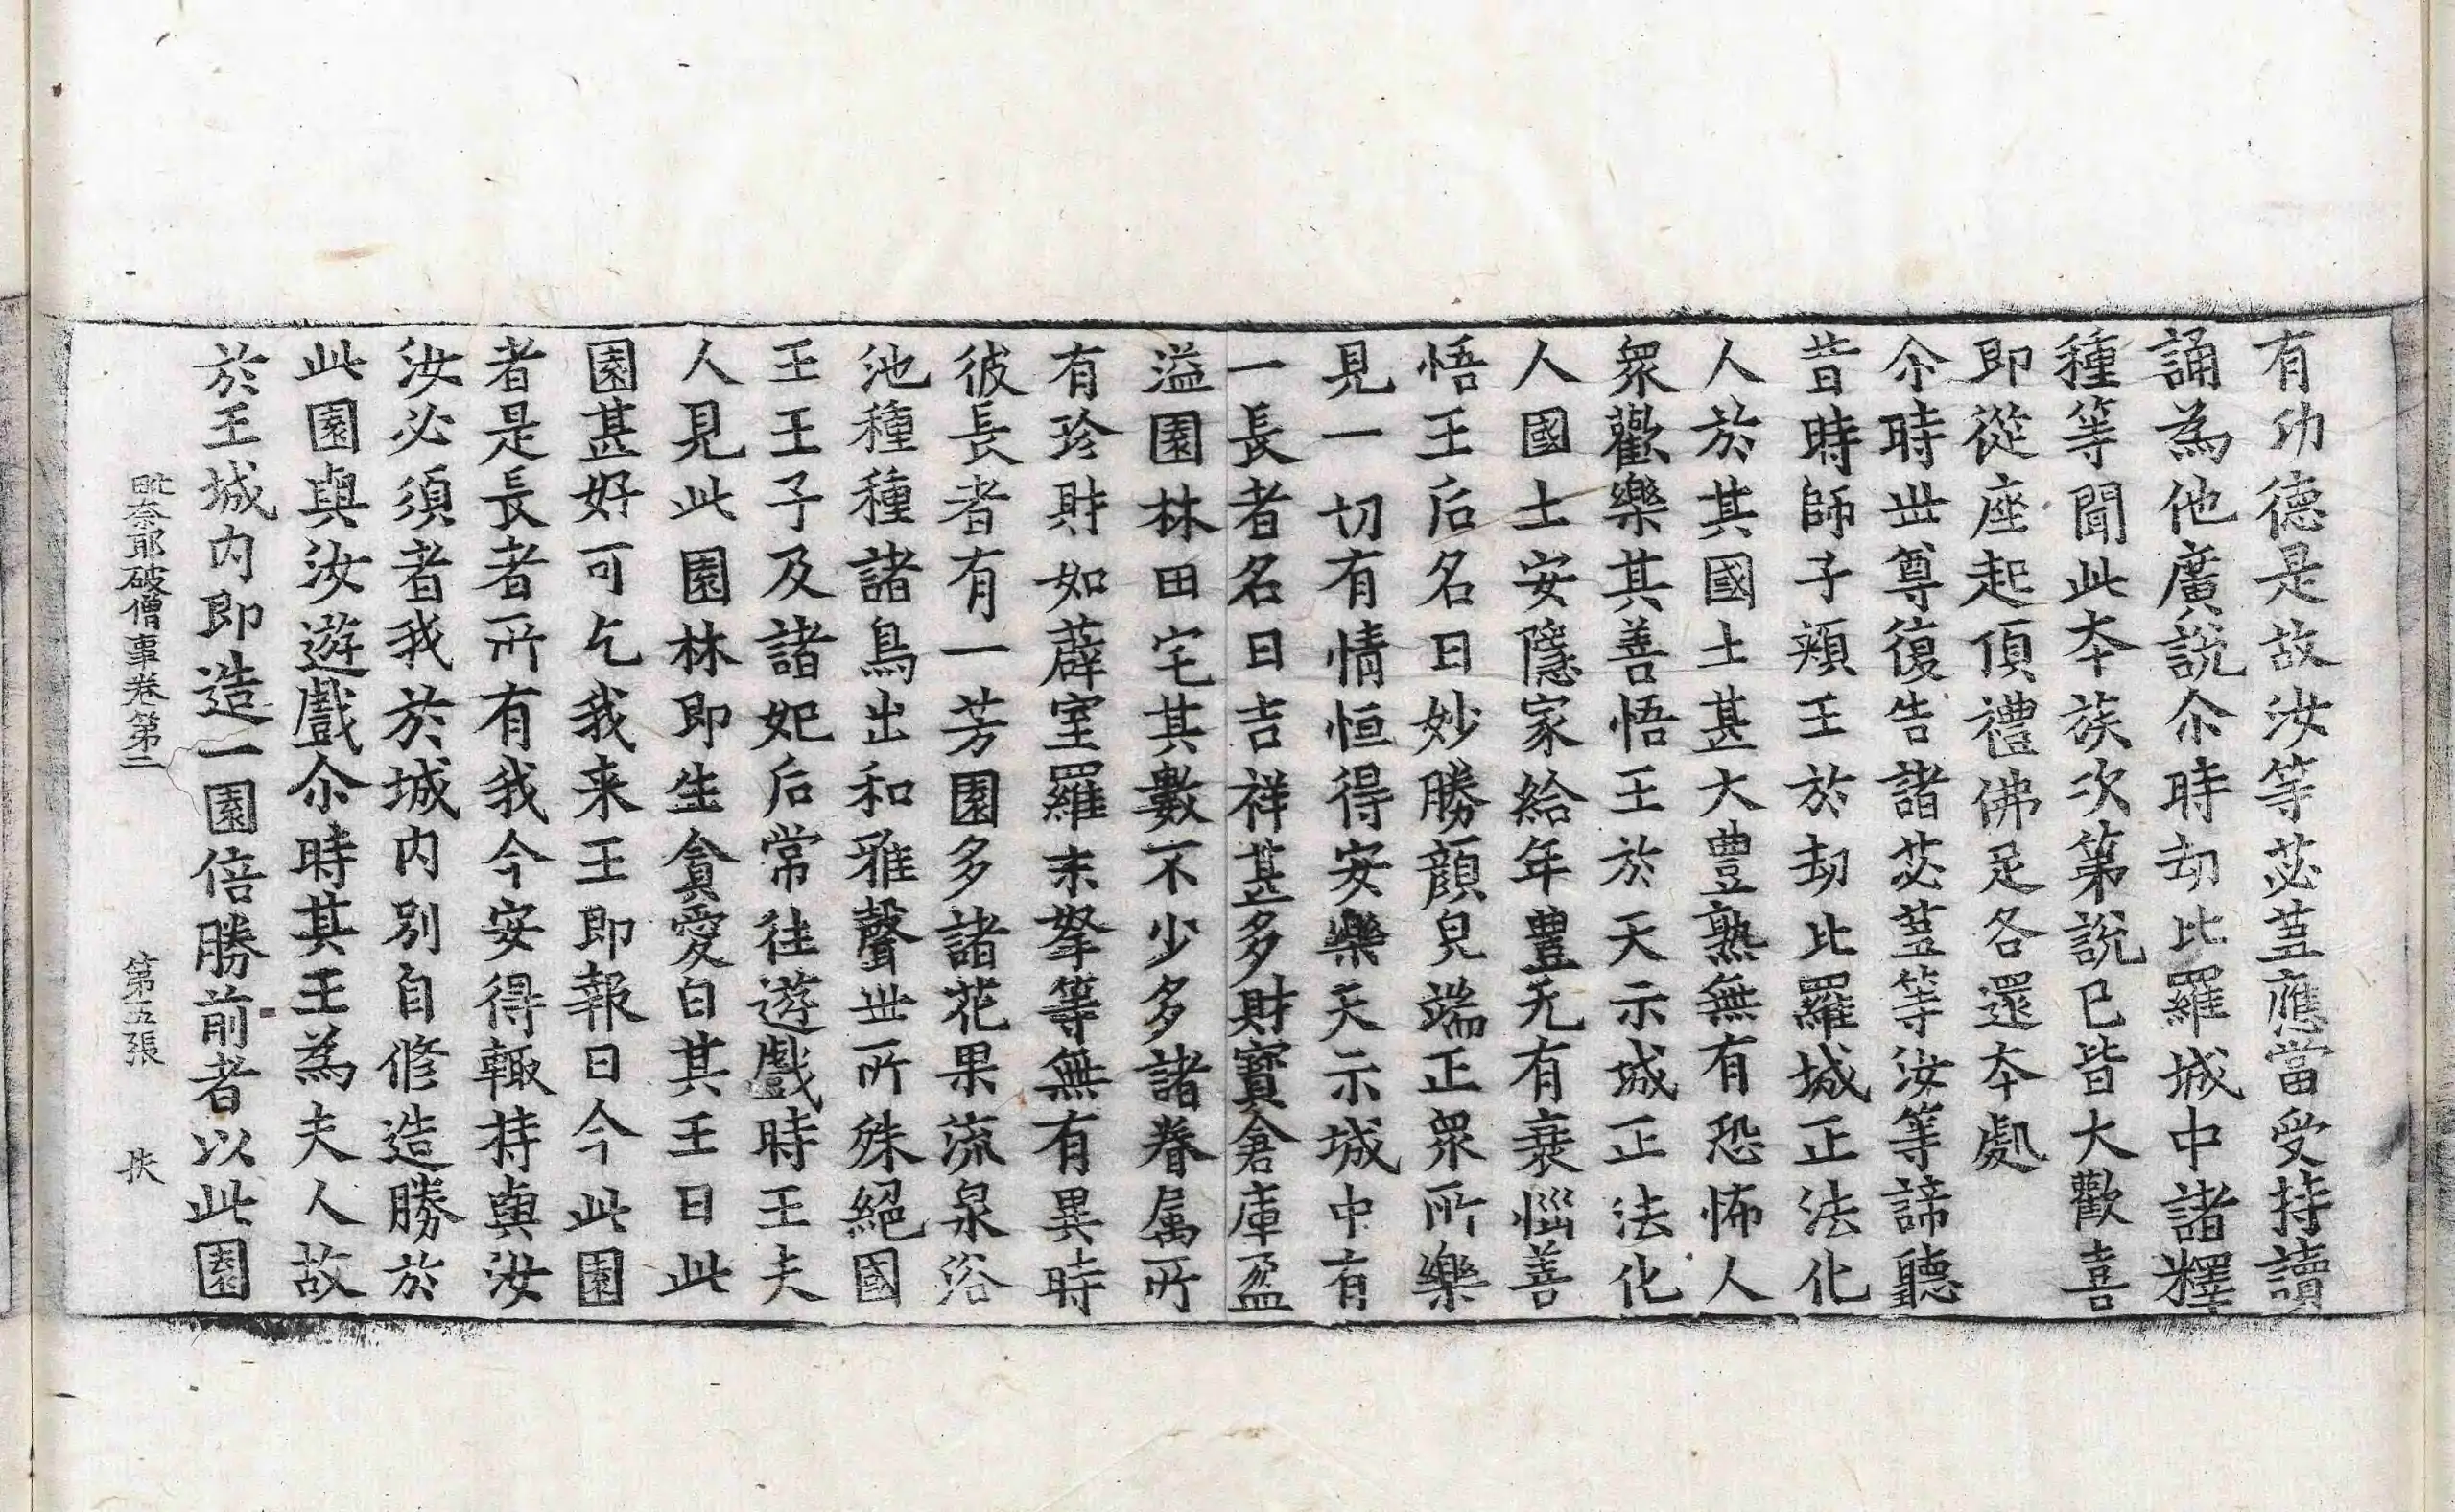 有功德是故汝等苾蒭應當受持讀
誦為他廣說尒時劫比羅城中諸釋
種等聞此夲族次第說已皆大歡喜
即從座起頂禮佛足各還夲處
尒時世尊復告諸苾蒭等汝等諦聽
昔時師子頰王於劫比羅城正法化
人於其國土甚大豊熟無有恐怖人
衆歡樂其善悟王於天示城正法化
人國土安隱家給年豊无有衰惱善
悟王后名曰妙勝顔皃端正衆所樂
見一切有情恒得安樂天示城中有
一長者名曰吉祥甚多財寶倉庫盈
溢園林田宅其數不少多諸眷属所
有珍財如薜室羅末拏等無有異時
彼長者有一芳園多諸花果流泉浴
池種種諸鳥出和雅聲世所殊絕國
王王子及諸妃后常往遊戲時王夫
人見此園林即生貪愛白其王曰此
園甚好可乞我来王即報曰今此園
者是長者所有我今安得輙持與汝
汝必須者我於城内別自修造勝於
此園與汝遊戲尒時其王為夫人故
於王城内即造一園倍勝前者以此園
毗奈耶破僧事卷第二 第五張 扶